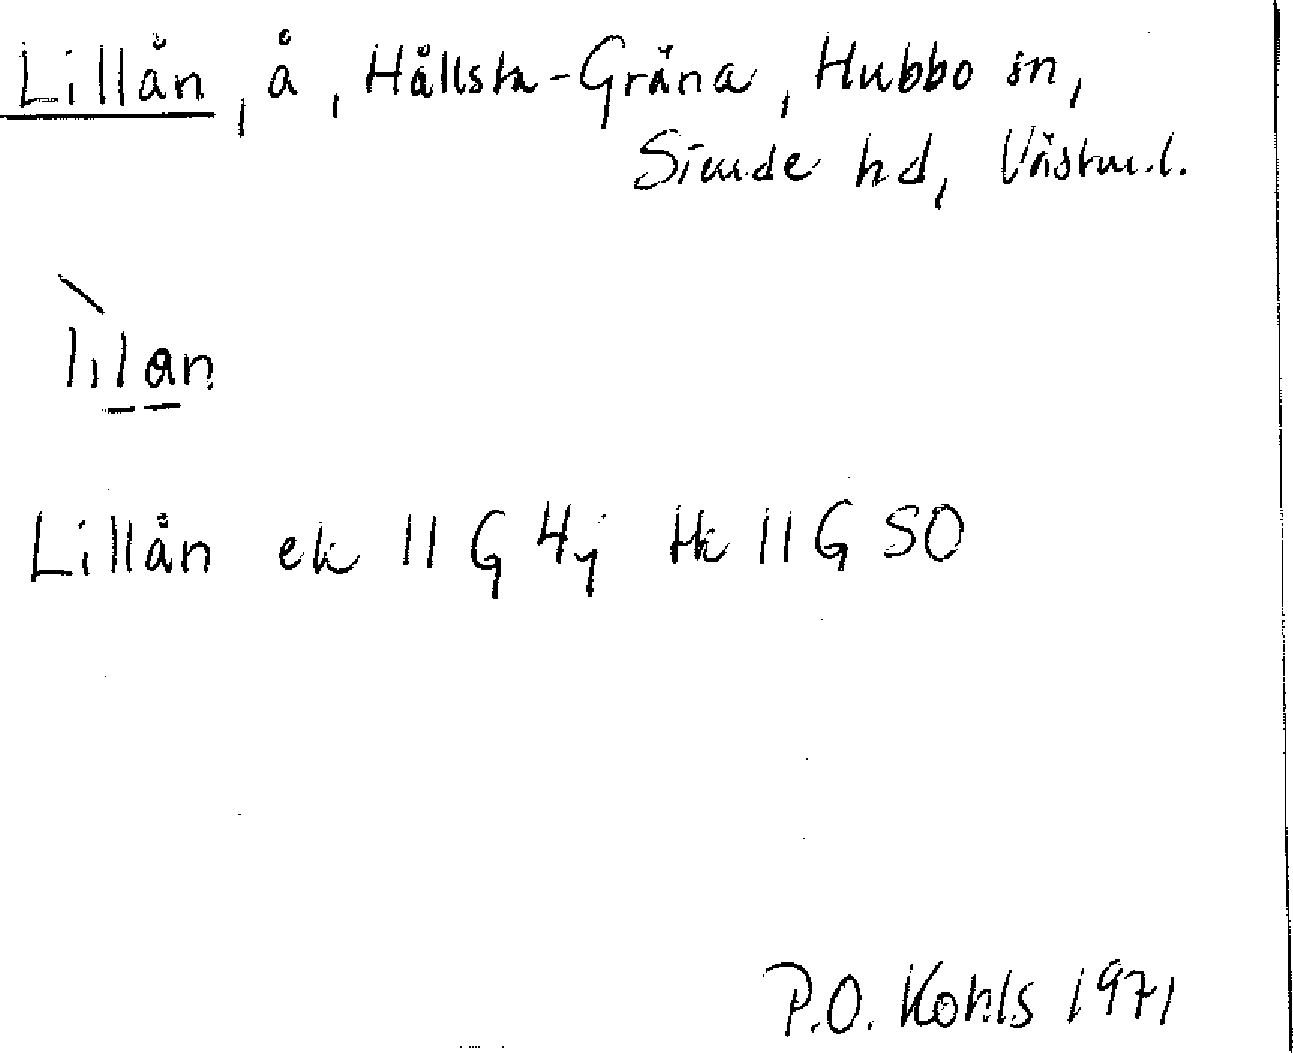 Lillån, å, Hållsta-Gräna, Hubbo sn,
Siende hd, Västm.l.
lilan
Lillån ek 11 G 4j Hk 11 G SO
P.O. Kohls 1971